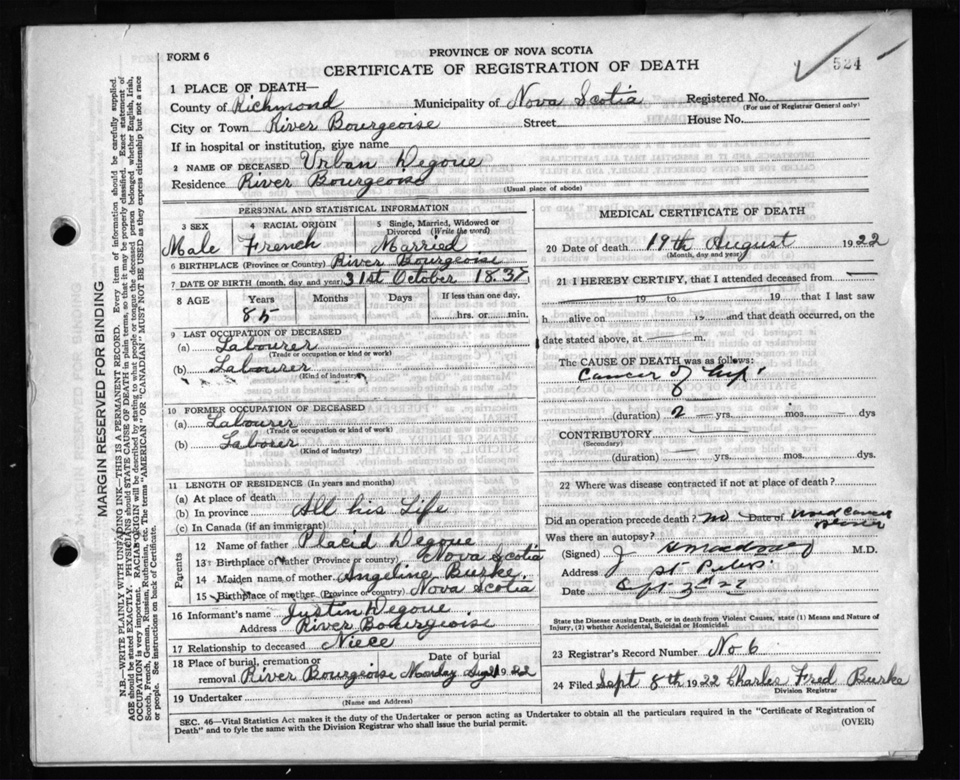 FORM 6
PROVINCE OF NOVA SCOTIA
CERTIFICATE OF REGISTRATION OF DEATH
524
1 PLACE OF DEATH—
County of Richmond Municipality of Nova Scotia Registered No.
(For use of Registrar General only)
City or Town River Bourgeoise Street House No.
If in hospital or institution, give name
2 NAME OF DECEASED Urban Degoue
Residence River Bourgeoise
(Usual place of abode)
PERSONAL AND STATISTICAL INFORMATION
3 SEX
Male
4 RACIAL ORIGIN
French
5 Single, Married, Widowed or Divorced (Write the word)
Married
6 BIRTHPLACE (Province or Country) River Bourgeoise
7 DATE OF BIRTH (month, day and year) 31st October 1837
8 AGE Years Months Days If less than one day,
85 hrs. or min.
9 LAST OCCUPATION OF DECEASED
(a) Labourer
(Trade or occupation or kind or work)
(b) Labourer
(Kind of industry)
10 FORMER OCCUPATION OF DECEASED
(a) Labourer
(Trade or occupation or kind of work)
(b) Laborer
(Kind of industry)
11 LENGTH OF RESIDENCE (In years and months)
(a) At place of death
(b) In province All his Life
(c) In Canada (if an immigrant)
Parents
12 Name of father Placid Degoue
13 Birthplace of father (Province or country) Nova Scotia
14 Maiden name of mother Angeline Burke
15 Birthplace of mother (Province or country) Nova Scotia
16 Informant's name Justin Degoue
Address River Bourgeoise
17 Relationship to deceased Niece
18 Place of burial, cremation or Date of burial
removal River Bourgeoise Monday Aug 21 1922
19 Undertaker
(Name and Address)
MEDICAL CERTIFICATE OF DEATH
20 Date of death 19th August 1922
(Month, day and year)
21 I HEREBY CERTIFY, that I attended deceased from
19 to 19 that I last saw
h alive on 19 and that death occurred, on
date stated above, at m.
The CAUSE OF DEATH was as follows:
Cancer of Lip
(duration) 2 yrs. mos. dys
CONTRIBUTORY
(Secondary)
(duration) yrs. mos. dys.
22 Where was disease contracted if not at place of death?
Did an operation precede death? no Date of
Was there an autopsy?
(Signed) J M.D.
Address St Peters
Date Sept 3rd 22
State the Disease causing Death, or in death from Violent Causes, state (1) Means and Nature of Injury, (2) whether Accidental, Suicidal or Homicidal.
23 Registrar's Record Number No 6
24 Filed Sept 8th 1922 Charles Fred Burke
Division Registrar
SEC. 46—Vital Statistics Act makes it the duty of the Undertaker or person acting as Undertaker to obtain all the particulars required in the "Certificate of Registration of
Death" and to fyle the same with the Division Registrar who shall issue the burial permit. (OVER)
MARGIN RESERVED FOR BINDING
N.B.—WRITE PLAINLY WITH UNFADING INK—THIS IS A PERMANENT RECORD. Every item of information should be carefully supplied.
AGE should be stated EXACTLY. PHYSICIANS should STATE CAUSE OF DEATH in plain terms, so that it may be properly classified. Exact statement of
OCCUPATION is very important. RACIAL ORIGIN will be described by stating to what people or tongue the deceased person belonged whether English, Irish,
Scotch, French, German, Russian, Ruthenian, etc. The terms "AMERICAN" OR "CANADIAN" MUST NOT BE USED as they express citizenship but not a race
or people. See instructions on back of Certificate.